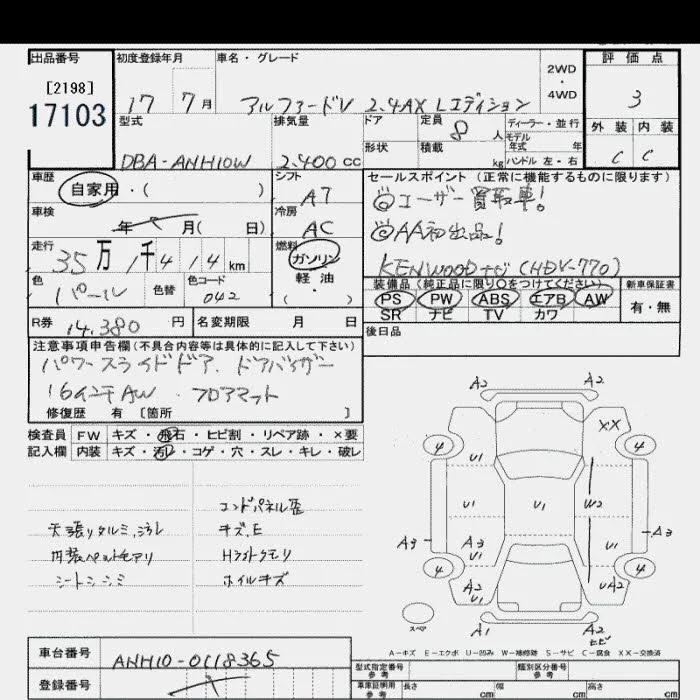 出品番号 初度登録年月 車名・グレード 評価点
[2198]
17103
17 7月 アルファードV 2.4AX Lエディション
2WD
・
4WD
3
型式 排気量 ドア 定員 8人 ディーラー・並行
モデル年式 年
外装 内装
DBA-ANH10W 2.400 cc 形状 積載 kg ハンドル 左・右
C C
車歴 自家用・( ) シフト A7 セールスポイント (正常に機能するものに限ります)
◎ユーザー買取車!
車検 年 月( 日) 冷房 AC
◎AA初出品!
走行 35万1千414km 燃料 ガソリン
軽油
( ・ )
KENWOODナビ(HDV-770)
色 パール 色替 色コード 042
装備品(純正品に限り○をつけてください) 新車保証書
PS PW ABS エアB AW 有・無
SR ナビ TV カワ
R券 14.380円 名変期限 月 日
後日品
注意事項申告欄(不具合内容等は具体的に記入して下さい)
パワースライドドア. ドアバイザー
16インチAW . フロアマット
修復歴 有 [箇所 ]
検査員 FW キズ・飛石・ヒビ割・リペア跡・×要
記入欄 内装 キズ・汚レ・コゲ・穴・スレ・キレ・破レ
コンドパネル
天張りタルミ. キズ.E
内装ペットモアリ Hライトクモリ
シートシミ ホイルキズ
A2 A2
XX
4 4
U1
U1 U1 W2
A3 A3
U1 U1 A3
4 4
A2
U1 UA2
スペア
A1 A2
ヒビ
A-キズ E-エクボ U-凹み W-補修跡 S-サビ C-腐食 XX-交換済
車台番号 ANH10-0118365
型式指定番号
参考
類別区分番号
参考
登録番号
車庫証明用
参考
長さ cm 幅 cm 高さ cm